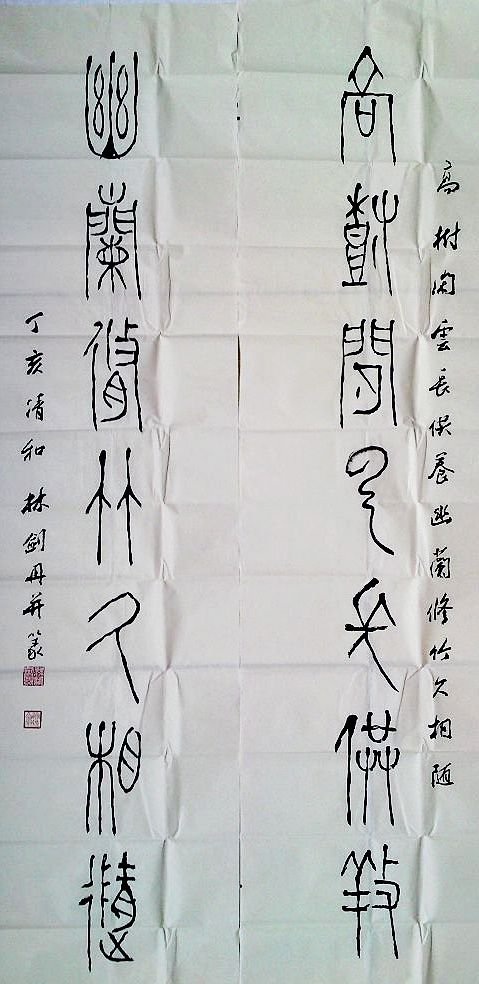 高樹閒雲長保養幽蘭修竹久相隨
高樹閒雲長保養
幽蘭脩竹久相隨
丁亥清和林劍丹并篆